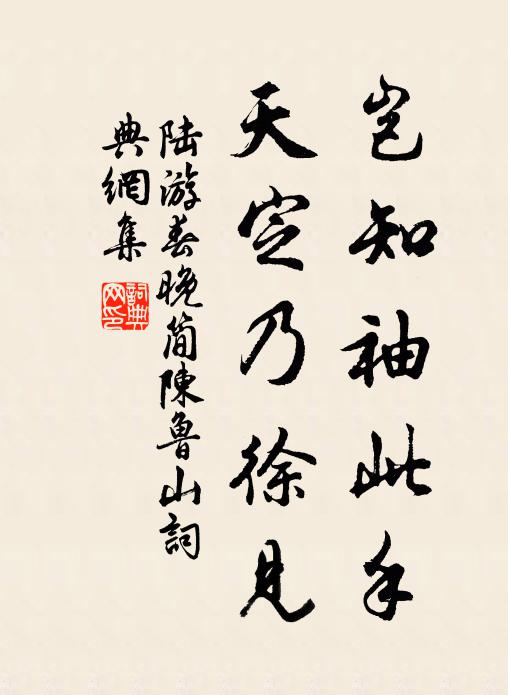 豈知袖此手
天定乃徐見
陸游春晚簡陳魯山詞
典網集
詞典網印